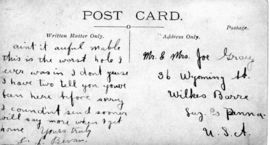 POST CARD.
Written Matter Only.
Address Only.
Postage.
aint it awful mable
this is the worst hole I
ever was in I dont guess
I have two tell you youve
ben here before sorry
I couldnt send sooner
will say more when I get
home Yours truly
Bevan.
Mr. & Mrs. Joe Gray
36 Wyoming St.
Wilkes Barre
Luz. Co Penna
U.S.A.